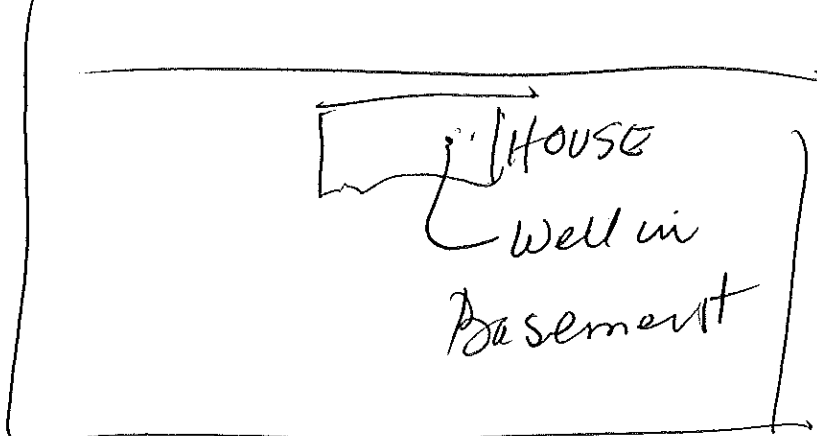 HOUSE
Well in
Basement